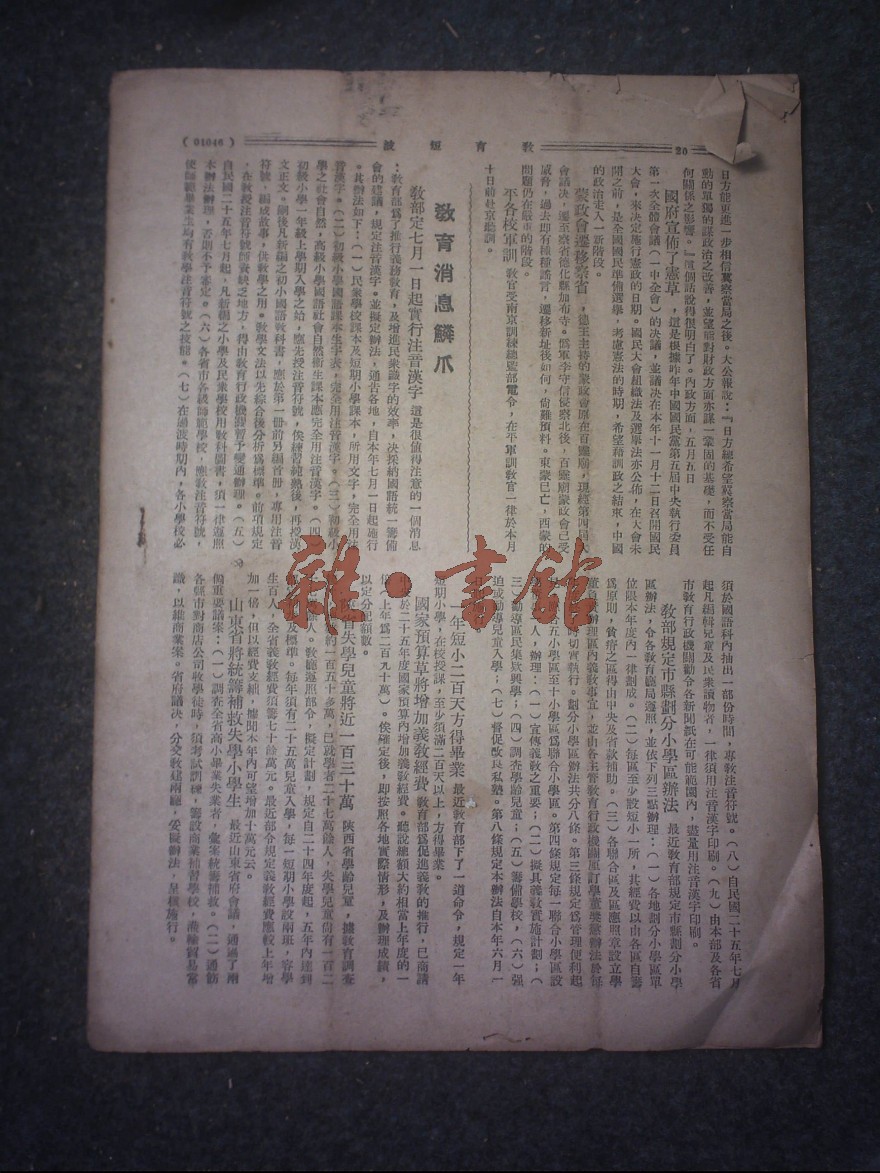 20
教育短波
( 01046 )
日方能更進一步相信冀察當局之後。大公報說：『日方總希望冀察當局能自
動的單獨的謀政治之改善，並望能對財政方面亦謀一鞏固的基礎，而不受任
何關係之影響。』這個話說得很明白了。內政方面，五月五日
國府宣佈了憲草，這是根據昨年中國國民黨第五屆中央執行委員
第一次全體會議（一中全會）的決議，並議決在本年十一月十二日召開國民
大會，來決定施行憲政的日期。國民大會組織法及選舉法亦公佈，在大會未
開之前，是全國國民準備選舉，考慮憲法的時期，希望藉訓政之結束，中國
的政治走入一新階段。
蒙政會遷移察省，德王主持的蒙政會原在百靈廟，現經第四屆
會議決，遷至察省德化縣加布寺。僞軍李守信侵察北後，百靈廟蒙政會已受
威脅，過去即有種種謠言，遷移新址後如何，尙難預料。東蒙已亡，西蒙的
問題仍在嚴重的階段。
平各校軍訓教官受南京訓練總監部電令，在平軍訓教官一律於本月
十日前赴京聽訓。
教育消息鱗爪
敎部定七月一日起實行注音漢字 這是很值得注意的一個消息
：教育部爲了推行義務教育，及增進民衆識字的效率，決採納國語統一籌備
會的建議，規定注音漢字。並擬定辦法，通告各地，自本年七月一日起施行
。其辦法如下：（一）民衆學校課本及短期小學課本，所用文字，完全用注
音漢字。（二）初級小學國語課本生字表，完全用注音漢字。（三）初級小
學之社會自然，高級小學國語社會自然衛生課本應完全用注音漢字。（四）
初級小學一年級上學期入學之始，應先授注音符號，俟練習純熟後，再授漢
文正文。嗣後凡新編之初小國語教科書，應於第一冊前另編首冊，專用注音
符號，編成故事，供敎學之用。敎學文法以先綜合後分析爲標準。前項規定
，在敎授注音符號師資缺乏地方，得由教育行政機關暫予變通辦理。（五）
自民國二十五年七月起，凡新編之小學及民衆學校用教科圖書，須一律遵照
本辦法辦理，否則不予審定。（六）各省市各級師範學校，應敎注音符號，
使師範畢業生均有敎學注音符號之技能。（七）在過渡時期內，各小學校必
須於國語科內抽出一部份時間，專敎注音符號。（八）自民國二十五年七月
起凡編輯兒童及民衆讀物者，一律須用注音漢字印刷。（九）由本部及各省
市教育行政機關勸令各新聞紙在可能範圍內，盡量用注音漢字印刷。
敎部規定市縣劃分小學區辦法 最近教育部規定市縣劃分小學
區辦法，令各教育廳局遵照，並依下列三點辦理：（一）各地劃分小學區單
位限本年度內一律劃成。（二）每區至少設短小一所，其經費以由各區自籌
爲原則，貧瘠之區得由中央及省款補助。（三）各聯合區及區應照章設立學
董負責辦理區內義教事宜，並由各主管教育行政機關區訂學董獎懲辦法於每
時切實執行。劃分小學區辦法共分八條。第三條規定爲管理便利起
五小學區至十小學區爲聯合小學區。第四條規定每一聯合小學區設
人，辦理：（一）宣傳義教之重要；（二）擬具義敎實施計劃；（
三）勸導區民集欵興學；（四）調查學齡兒童；（五）籌備學校，（六）强
迫或勸導兒童入學；（七）督促改良私塾。第八條規定本辦法自本年六月一
一年短小二百天方得畢業 最近教育部下了一道命令，規定一年
短期小學，在校授課，至少須滿二百天以上，方得畢業。
國家預算草將增加義敎經費 教育部爲促進義教的推行，已商請
於二十五年度國家預算內增加義教經費。聽說總額大約相當上年度的一
倍（上年爲二百九十萬）。俟確定後，即按照各地實際情形，及辦理成績，
以定分配額數。
失學兒童將近一百三十萬 陝西省學齡兒童，據教育調查
約一百五十多萬，已就學者二十七萬餘人，失學兒童尙有一百二
人。教廳遵照部令，擬定計劃，規定自二十四年度起，五年內達到
及標準。每年須有二十五萬兒童入學，每一短期小學設兩班，容學
生百人，全省義敎經費須籌七十餘萬元。最近部令規定義敎經費應較上年增
加一倍，俱以經費支絀，據聞本年內可望增加十萬元云。
山東省將統籌補救失學小學生 最近山東省府會議，通過了兩
個重要議案：（一）調查全省高小畢業失業者，彙案統籌補救。（二）通飭
各縣市對商店公司收學徒時，須考試訓練，籌設商業補習學校，灌輸貿易常
識，以維商業案。省府議決，分交教建兩廳，妥擬辦法，呈核施行。
雜·書館